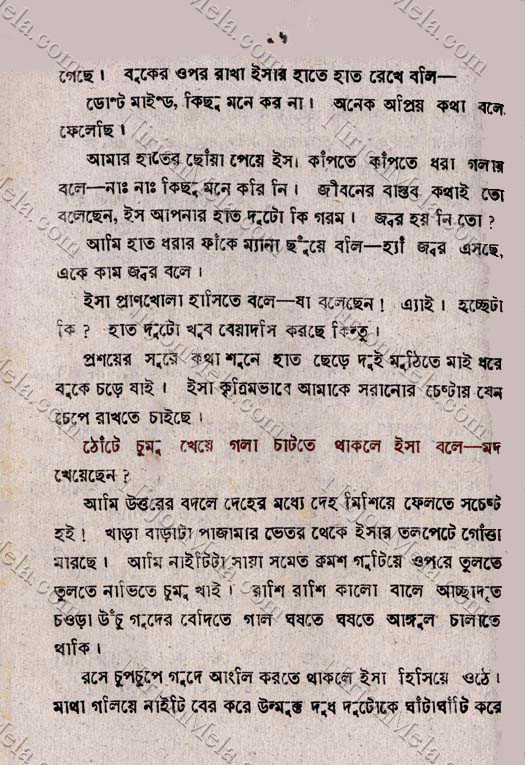 গেছে। বুকের ওপর রাখা ইসার হাতে হাত রেখে বলি—
ডোণ্ট মাইণ্ড, কিছু মনে কর না। অনেক অপ্রিয় কথা বলে
ফেলেছি।
আমার হাতের ছোঁয়া পেয়ে ইসা কাঁপতে কাঁপতে ধরা গলায়
বলে—নাঃ নাঃ কিছু মনে করি নি। জীবনের বাস্তব কথাই তো
বলেছেন, ইস আপনার হাত দুটো কি গরম। জ্বর হয় নি তো?
আমি হাত ধরার ফাঁকে ম্যানা ছুঁয়ে বলি—হ্যাঁ জ্বর এসছে,
একে কাম জ্বর বলে।
ইসা প্রাণখোলা হাসিতে বলে—যা বলেছেন! এ্যাই। হচ্ছেটা
কি? হাত দুটো খুব বেয়াদপি করছে কিন্তু।
প্রশয়ের সুরে কথা শুনে হাত ছেড়ে দুই মুঠিতে মাই ধরে
বুকে চড়ে যাই। ইসা কৃত্রিমভাবে আমাকে সরানোর চেষ্টায় যেন
চেপে রাখতে চাইছে।
ঠোঁটে চুমু খেয়ে গলা চাটতে থাকলে ইসা বলে—মদ
খেয়েছেন?
আমি উত্তরের বদলে দেহের মধ্যে দেহ মিশিয়ে ফেলতে সচেষ্ট
হই! খাড়া বাড়াটা পাজামার ভেতর থেকে ইসার তলপেটে গোঁত্তা
মারছে। আমি নাইটিটা সায়া সমেত ক্রমশ গুটিয়ে ওপরে তুলতে
তুলতে নাভিতে চুমু খাই। রাশি রাশি কালো বালে আচ্ছাদৃত
চওড়া উঁচু গুদের বেদিতে গাল ঘষতে ঘষতে আঙ্গুল চালাতে
থাকি।
রসে চুপচুপে গুদে আংলি করতে থাকলে ইসা হিসিয়ে ওঠে।
মাথা গলিয়ে নাইটি বের করে উন্মুক্ত দুধ দুটোকে ঘাঁটাঘাঁটি করে